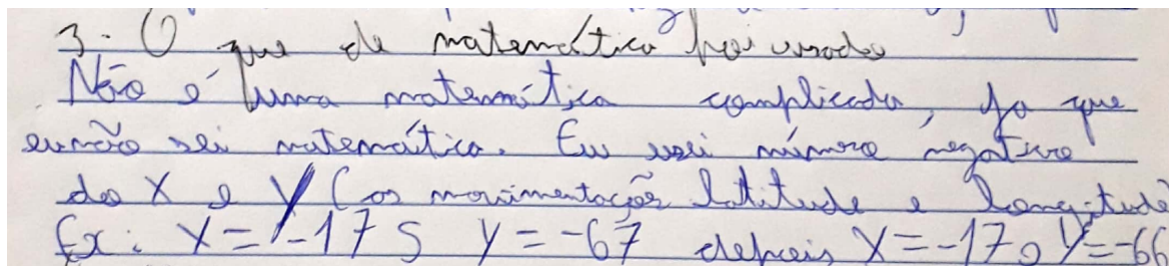 3. O que de matemática foi usado
Não é uma matemática complicada, ja que
eu não sei matemática. Eu usei número negativo
do X e Y (as movimentações latitude e longitude
Ex: X = -175 Y = -67 depois X = -170 Y = -66